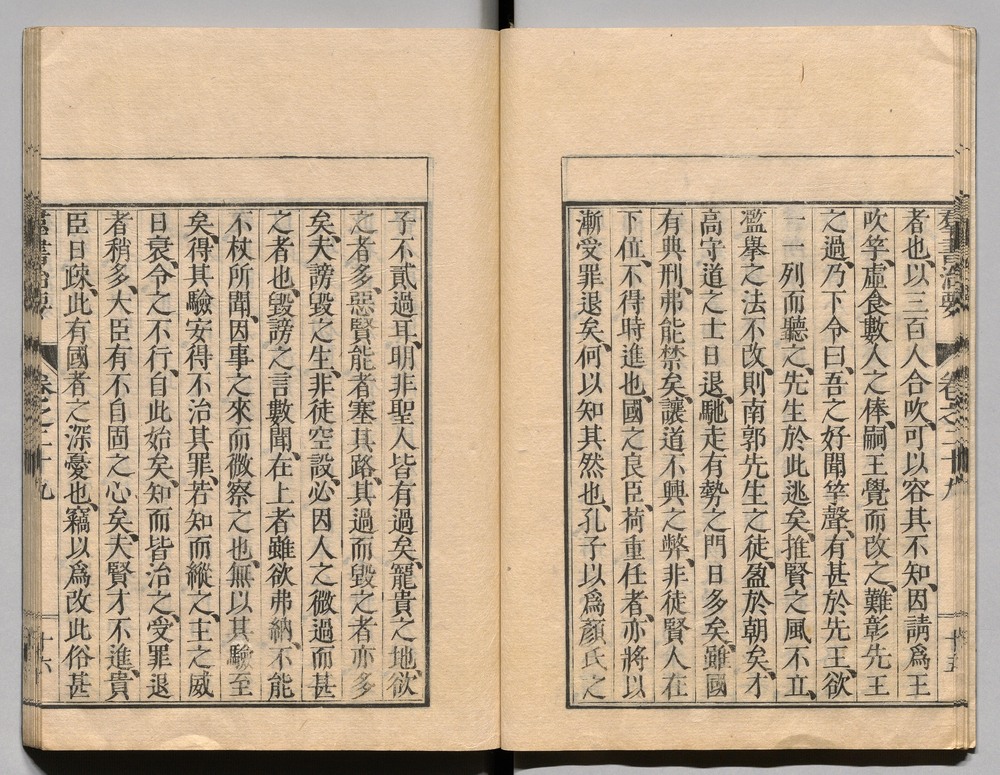 羣書治要　卷之二十九　十五
者也、以三百人合吹、可以容其不知、因請爲王
吹竽、虛食數人之俸、嗣王覺而改之、難彰先王
之過、乃下令曰、吾之好聞竽聲、有甚於先王、欲
一一列而聽之、先生於此逃矣、推賢之風不立、
濫舉之法不改、則南郭先生之徒、盈於朝矣、才
高守道之士日退、馳走有勢之門日多矣、雖國
有典刑、弗能禁矣、讓道不興之弊、非徒賢人在
下位、不得時進也、國之良臣、荷重任者、亦將以
漸受罪退矣、何以知其然也、孔子以爲顏氏之
子不貳過耳、明非聖人皆有過矣、寵貴之地、欲
之者多、惡賢能者塞其路、其過而毀之者亦多
矣、夫謗毀之生、非徒空設、必因人之微過而甚
之者也、毀謗之言數聞、在上者雖欲弗納、不能
不杖所聞、因事之來而微察之也、無以其驗至
矣、得其驗安得不治其罪、若知而縱之、主之威
日衰、令之不行、自此始矣、知而皆治之、受罪退
者稍多、大臣有不自固之心矣、夫賢才不進、貴
臣日疎、此有國者之深憂也、竊以爲改此俗甚
羣書治要　卷之二十九　十六